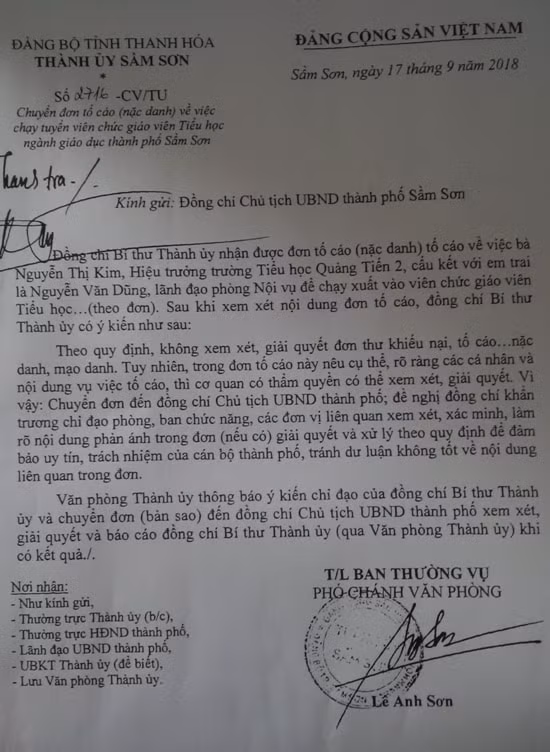 ĐẢNG BỘ TỈNH THANH HÓA
THÀNH ỦY SẦM SƠN
*
Số 2716 -CV/TU
Chuyển đơn tố cáo (nặc danh) về việc
chạy tuyển viên chức giáo viên Tiểu học
ngành giáo dục thành phố Sầm Sơn
ĐẢNG CỘNG SẢN VIỆT NAM
Sầm Sơn, ngày 17 tháng 9 năm 2018
Thanh tra
Kính gửi: Đồng chí Chủ tịch UBND thành phố Sầm Sơn
Đồng chí Bí thư Thành ủy nhận được đơn tố cáo (nặc danh) tố cáo về việc bà
Nguyễn Thị Kim, Hiệu trưởng trường Tiểu học Quảng Tiến 2, cấu kết với em trai
là Nguyễn Văn Dũng, lãnh đạo phòng Nội vụ để chạy xuất vào viên chức giáo viên
Tiểu học…(theo đơn). Sau khi xem xét nội dung đơn tố cáo, đồng chí Bí thư
Thành ủy có ý kiến như sau:
Theo quy định, không xem xét, giải quyết đơn thư khiếu nại, tố cáo…nặc
danh, mạo danh. Tuy nhiên, trong đơn tố cáo này nêu cụ thể, rõ ràng các cá nhân và
nội dung vụ việc tố cáo, thì cơ quan có thẩm quyền có thể xem xét, giải quyết. Vì
vậy: Chuyển đơn đến đồng chí Chủ tịch UBND thành phố; đề nghị đồng chí khẩn
trương chỉ đạo phòng, ban chức năng, các đơn vị liên quan xem xét, xác minh, làm
rõ nội dung phản ánh trong đơn (nếu có) giải quyết và xử lý theo quy định để đảm
bảo uy tín, trách nhiệm của cán bộ thành phố, tránh dư luận không tốt về nội dung
liên quan trong đơn.
Văn phòng Thành ủy thông báo ý kiến chỉ đạo của đồng chí Bí thư Thành
ủy và chuyển đơn (bản sao) đến đồng chí Chủ tịch UBND thành phố xem xét,
giải quyết và báo cáo đồng chí Bí thư Thành ủy (qua Văn phòng Thành ủy) khi
có kết quả./.
Nơi nhận:
- Như kính gửi,
- Thường trực Thành ủy (b/c),
- Thường trực HĐND thành phố,
- Lãnh đạo UBND thành phố,
- UBKT Thành ủy (để biết),
- Lưu Văn phòng Thành ủy.
T/L BAN THƯỜNG VỤ
PHÓ CHÁNH VĂN PHÒNG
Lê Anh Sơn